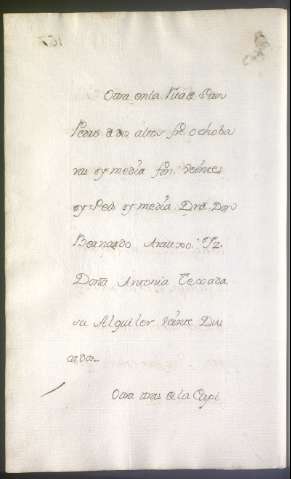 Otra en la Vita de San
Pedro de dos altos fre. ocho ba
ras y media fon. veinte
y seis y media. De Dn
Bernardo Araujo. Yz
Doña Antonia Texada
su Alquiler vainte Du
cados.
Otra tras de la Capi